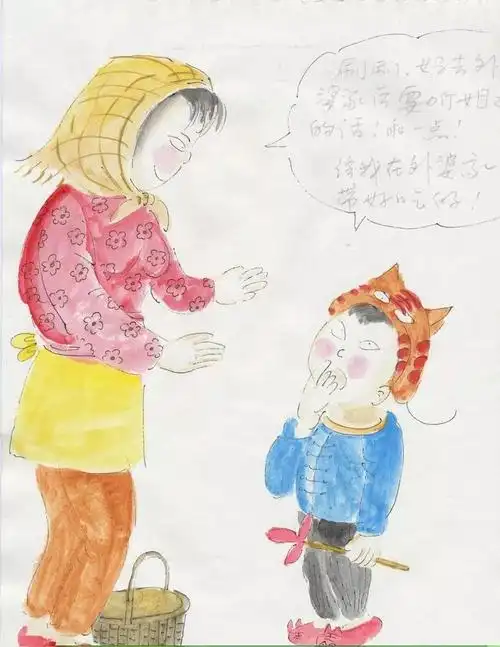 刚刚，妈去外
婆家后要听姐
的话！乖一点！
给我在外婆家
带好吃的！